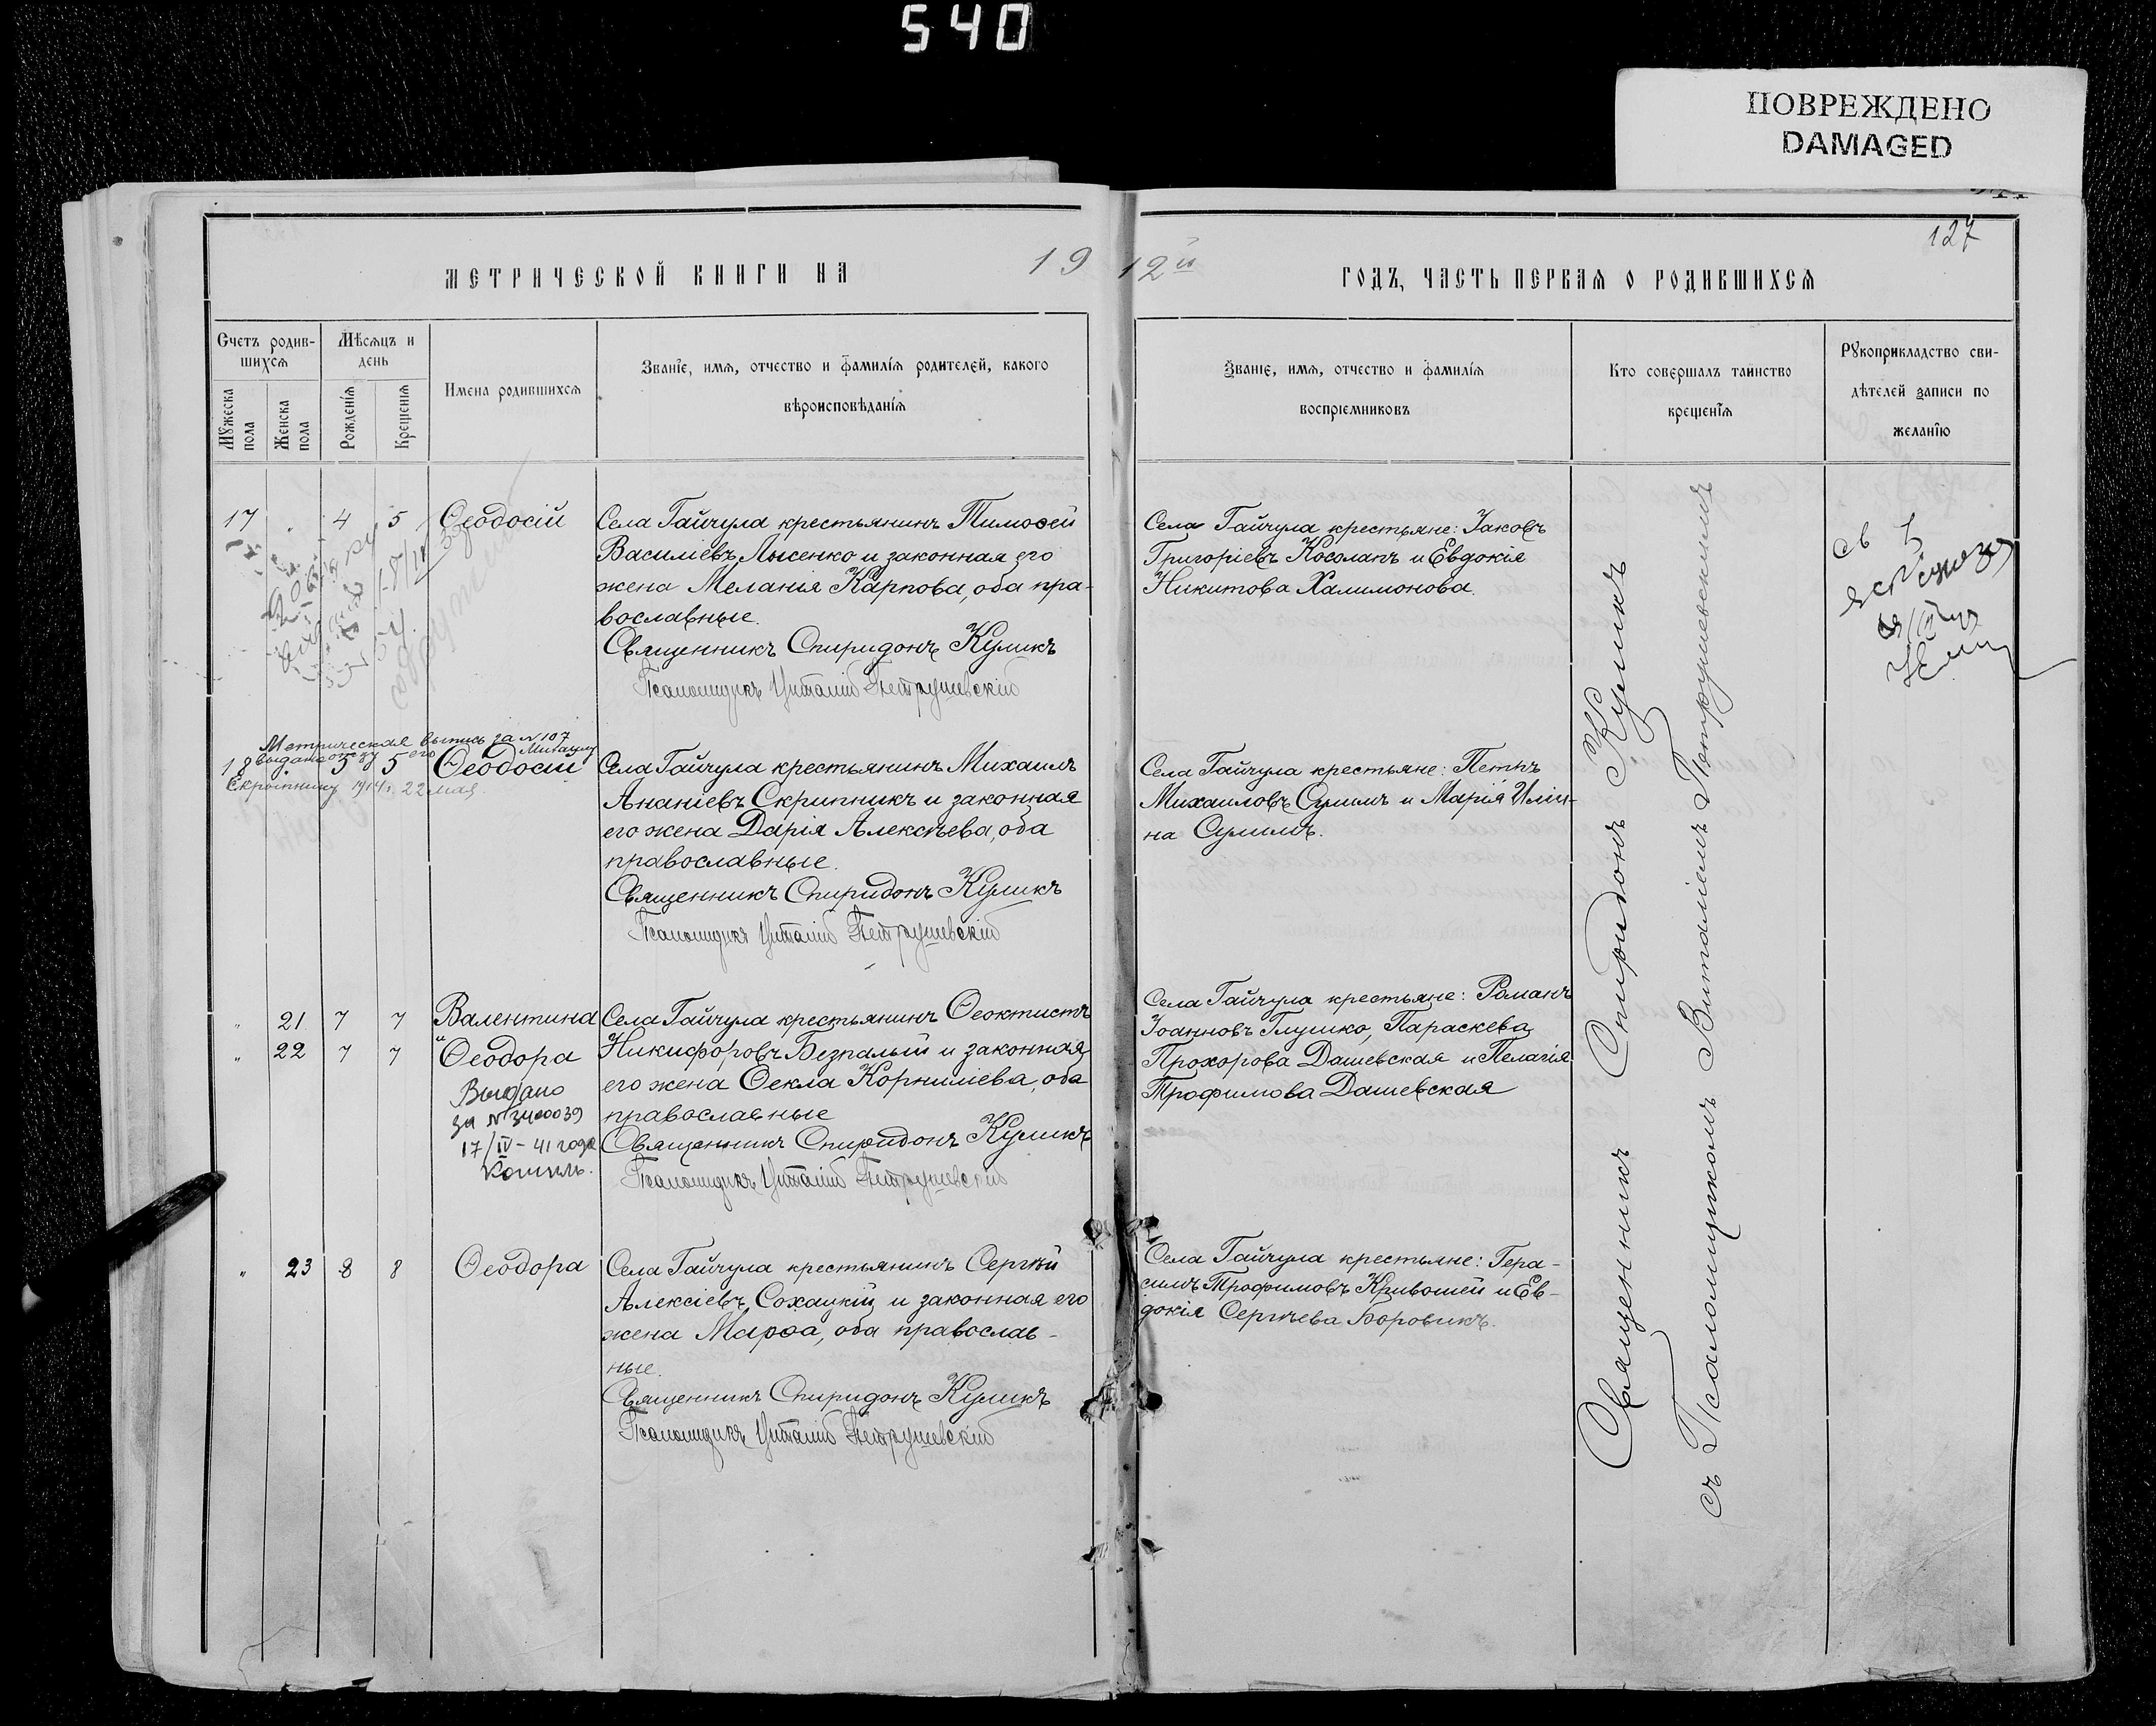 540
ПОВРЕЖДЕНО
DAMAGED
127
МЕТРИЧЕСКОЙ КНИГИ НА 19
12й ГОДЪ, ЧАСТЬ ПЕРВАЯ О РОДИВШИХСЯ
Счетъ родив-
шихся
Мѣсяцъ и
день
Мужеска
пола
Женска
пола
Рожденія
Крещенія
Имена родившихся
Званіе, имя, отчество и фамилія родителей, какого
вѣроисповѣданія
Званіе, имя, отчество и фамилія
воспріемниковъ
Кто совершалъ таинство
крещенія
Рукоприкладство сви-
дѣтелей записи по
желанію
17 " 4 5 Ѳеодосій
Села Гайчула крестьянинъ Тимоѳей
Василіевъ Лысенко и законная его
жена Меланія Карпова, оба пра-
вославные.
Священникъ Спиридонъ Куликъ
Псаломщикъ Виталій Петрушевскій
Села Гайчула крестьяне: Іаковъ
Григоріевъ Косолапъ и Евдокія
Никитова Халимонова.
Метрическая выпись за № 107
выдана отцу его Михаилу
Скрипнику 1914 г. 22 мая
18 5 5 Ѳеодосій
Села Гайчула крестьянинъ Михаилъ
Ананіевъ Скрипникъ и законная
его жена Дарія Алексѣева, оба
православные.
Священникъ Спиридонъ Куликъ
Псаломщикъ Виталій Петрушевскій
Села Гайчула крестьяне: Петръ
Михаиловъ Сулимъ и Марія Иліи-
на Сулимъ.
" 21 7 7 Валентина
" 22 7 7 Ѳеодора
Выдано
за № 3400039
17/IV - 41 года
Села Гайчула крестьянинъ Ѳеоктистъ
Никифоровъ Безпалый и законная
его жена Ѳекла Корниліева, оба
православные
Священникъ Спиридонъ Куликъ
Псаломщикъ Виталій Петрушевскій
Села Гайчула крестьяне: Романъ
Іоанновъ Глушко, Параскева
Прохорова Дашевская и Пелагія
Трофимова Дашевская
" 23 8 8 Ѳеодора
Села Гайчула крестьянинъ Сергѣй
Алексіевъ Сохацкій и законная его
жена Марѳа, оба православ-
ные.
Священникъ Спиридонъ Куликъ
Псаломщикъ Виталій Петрушевскій
Села Гайчула крестьяне: Гера-
симъ Трофимовъ Кривошей и Ев-
докія Сергѣева Боровикъ.
Священникъ Спиридонъ Куликъ
съ Псаломщикомъ Виталіемъ Петрушевскимъ